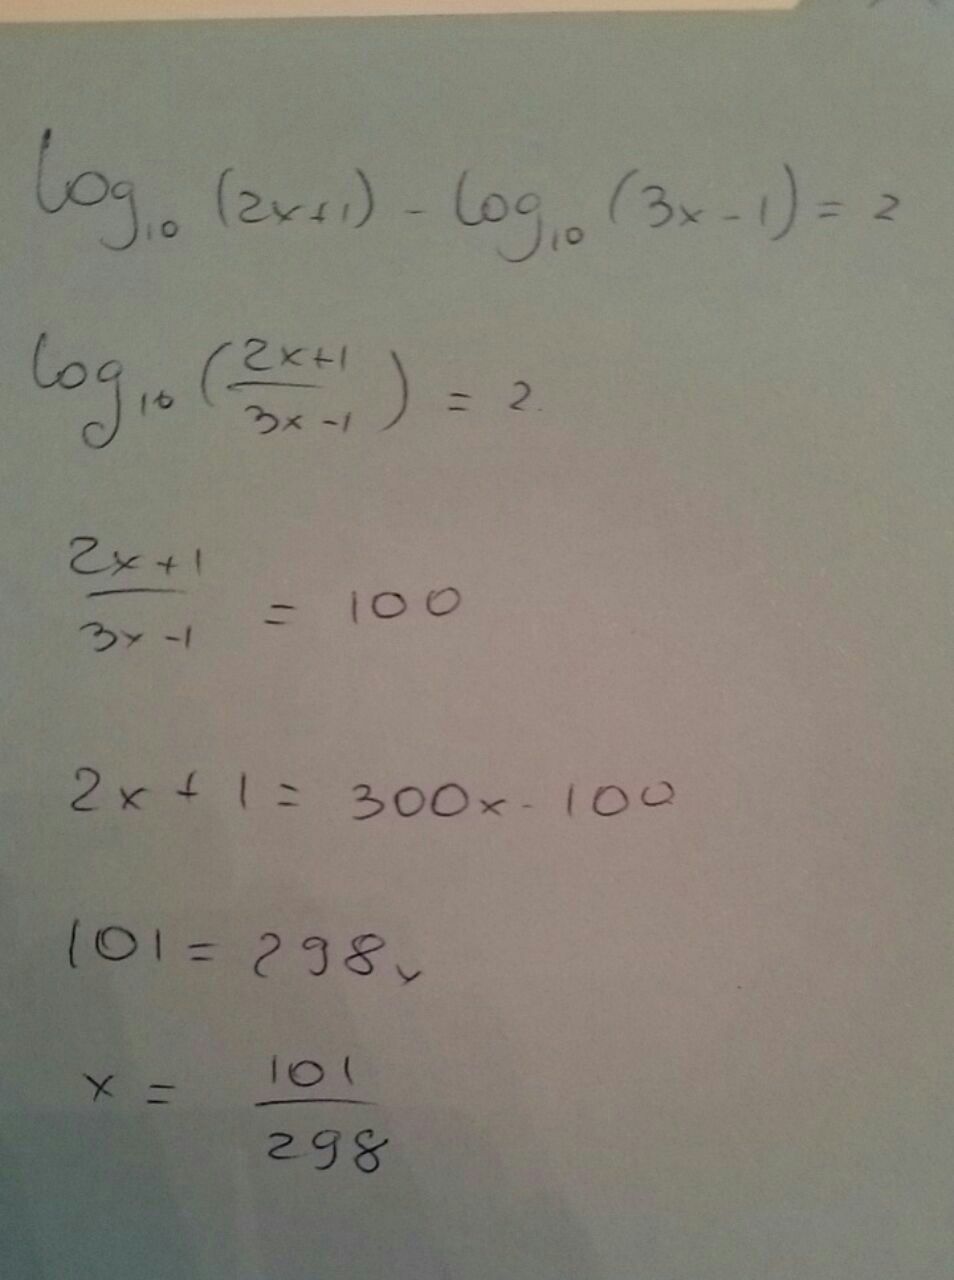 log₁₀ (2x+1) - log₁₀ (3x-1) = 2
log₁₀ (2x+1 / 3x-1) = 2.
2x+1 / 3x-1 = 100
2x + 1 = 300x - 100
101 = 298x
x = 101 / 298